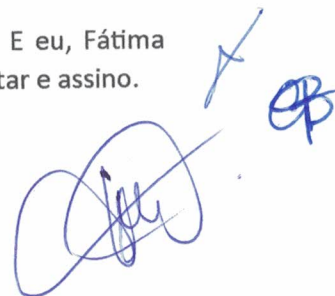 E eu, Fátima
tar e assino.